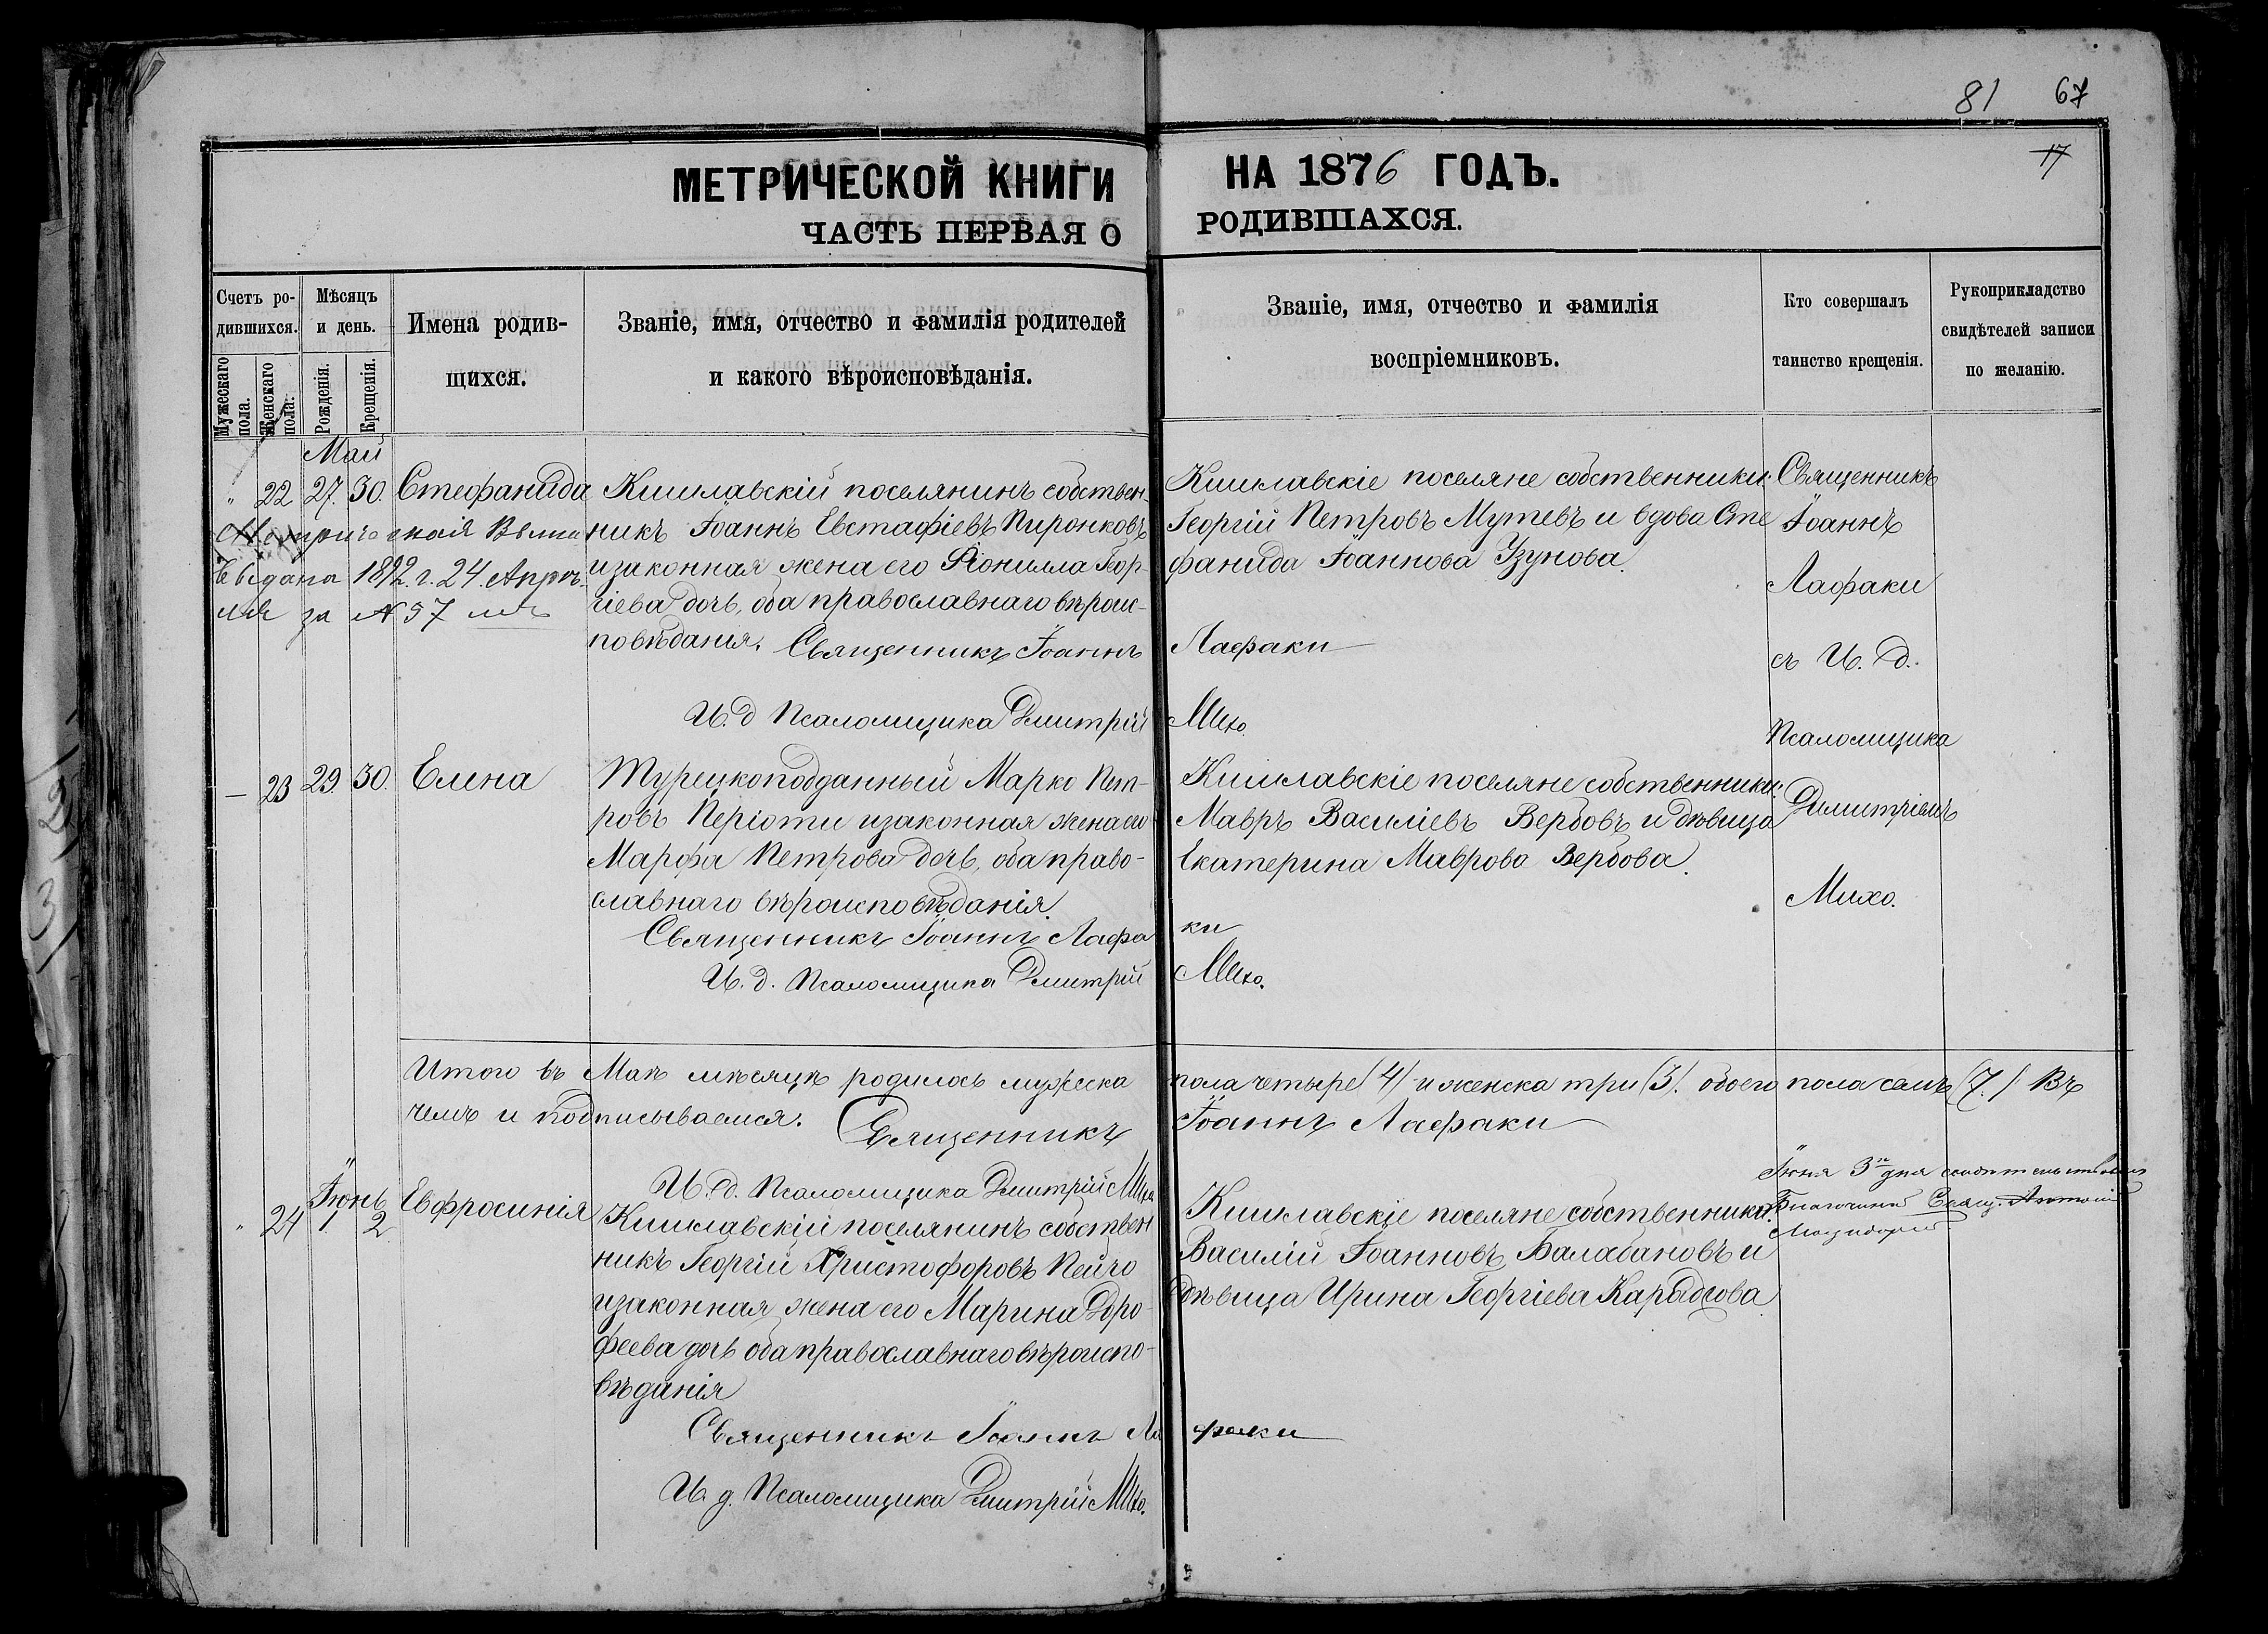 81 67
17
МЕТРИЧЕСКОЙ КНИГИ НА 1876 ГОДЪ.
ЧАСТЬ ПЕРВАЯ О РОДИВШАХСЯ.
Счетъ ро-
дившихся.
Мужескаго пола.
Женскаго пола.
Мѣсяцъ
и день.
Рожденія.
Крещенія.
Имена родив-
щихся.
Званіе, имя, отчество и фамилія родителей
и какого вѣроисповѣданія.
Званіе, имя, отчество и фамилія
воспріемниковъ.
Кто совершалъ
таинство крещенія.
Рукоприкладство
свидѣтелей записи
по желанію.
Май
" 22 27. 30. Стефанида
выдана 1892 г. 24 Апрѣ-
ля за № 57 мъ
Кишлавскій поселянинъ собствен-
никъ Іоаннъ Евстафіевъ Пиронковъ
и законная жена его Неонилла Геор-
гіева дочь, оба православнаго вѣроис-
повѣданія. Священникъ Іоаннъ Лафаки
И. д Псаломщика Дмитрій Михо.
Кишлавскіе поселяне собственники:
Георгій Петровъ Мутевъ и вдова Сте
фанида Іоаннова Узунова.
Священникъ
Іоаннъ
Лафаки
съ И. д.
Псаломщика
Димитріемъ
Михо.
— 23 29. 30. Елена
Турецкоподданный Марко Пет-
ровъ Періоти и законная жена его
Марфа Петрова дочь, оба право-
славнаго вѣроисповѣданія.
Священникъ Іоаннъ Лафаки
И. д. Псаломщика Дмитрій Михо.
Кишлавскіе поселяне собственники:
Мавръ Василіевъ Вербовъ и дѣвица
Екатерина Маврова Вербова.
Итого въ Маѣ мѣсяцѣ родилось мужеска пола четыре (4) и женска три (3). обоего пола семь (7.) Въ
чемъ и подписываемся. Священникъ Іоаннъ Лафаки
И. д. Псаломщика Дмитрій Михо
Іюня 3го дня
Благочинный Свящ.
Іюнь
" 24 1. 2. Евфросинія
Кишлавскій поселянинъ собствен
никъ Георгій Христофоровъ Пейчо
и законная жена его Марина Доро-
феева дочь оба православнаго вѣроиспо-
вѣданія
Священникъ Іоаннъ Лафаки
И. д. Псаломщика Дмитрій Михо.
Кишлавскіе поселяне собственники:
Василій Іоанновъ Балабановъ и
дѣвица Ирина Георгіева